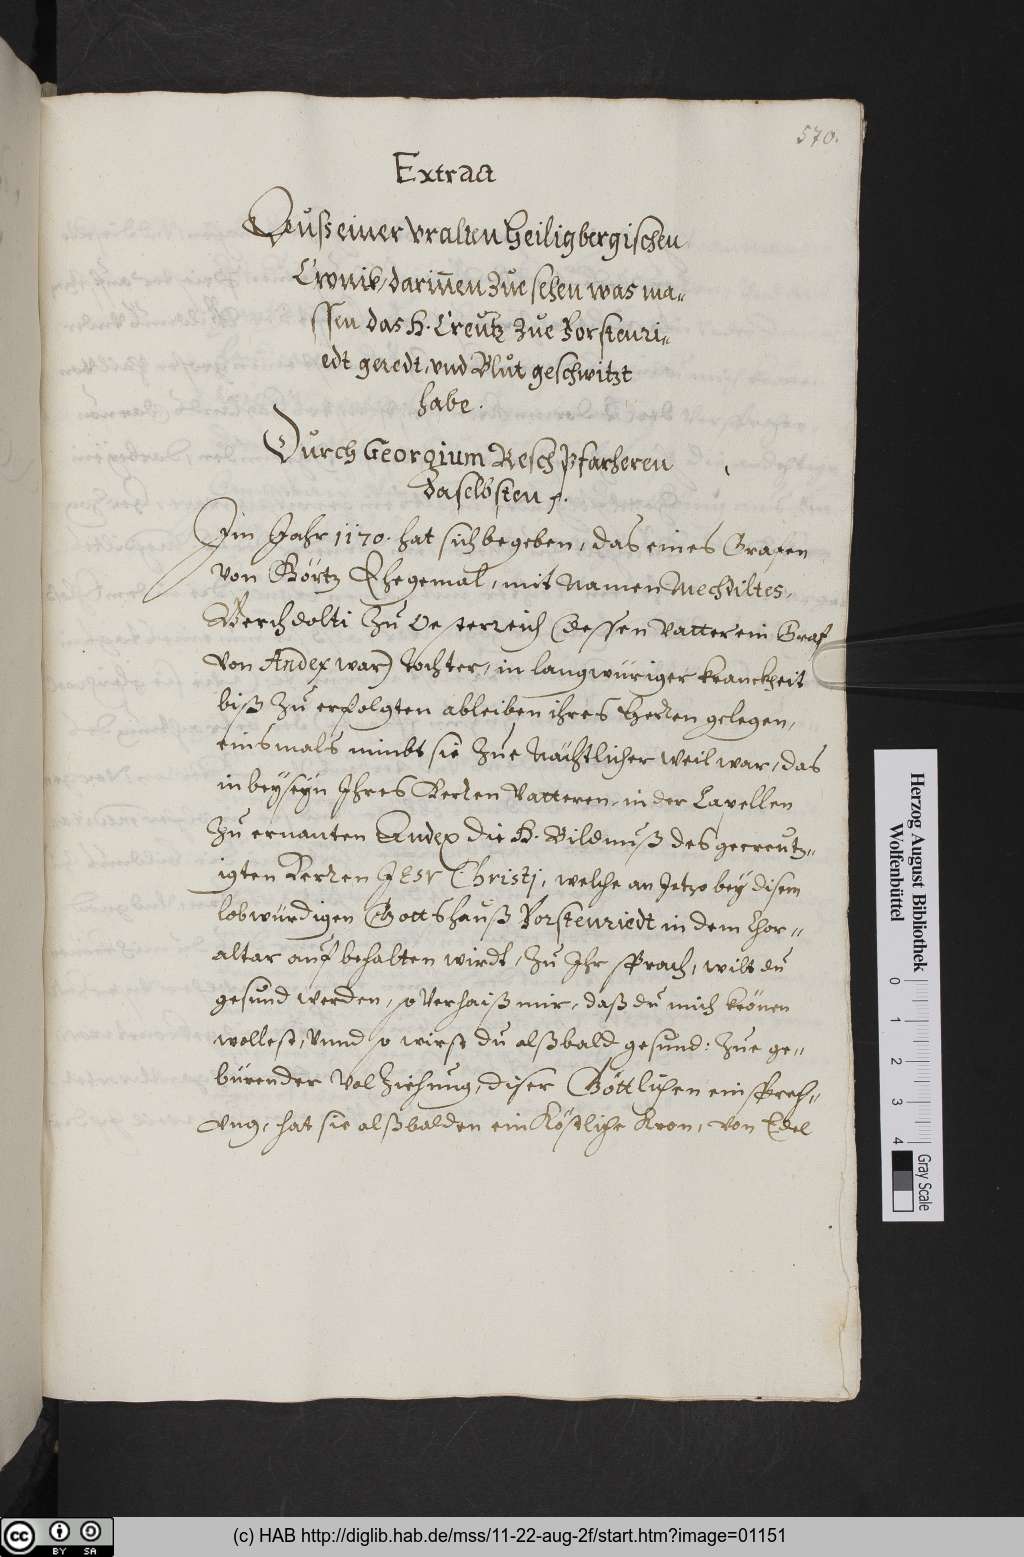 570.
Extract
Auß einer vralten Heiligbergischen
Cronik, darinnen zue sehen was ma-
ssen das H. Creutz zue Forstenri-
edt geredt, vnd Blut geschwitzt
habe.
Durch Georgium Resch Pfarheren
daselbsten
Im Jahr 1170. hat sich begeben, das eines Grafen
von Görtz Ehegemal, mit Namen Mechdiltes,
Berchdolti zu Oesterreich (dessen Vatter ein Graf
von Andex war) Tochter, in langwüriger kranckheit
biß zu erfolgten ableiben ihres Herren gelegen,
einsmals nimbt sie zue Nächtlicher weil war, das
in beyseyn Ihres Herren Vatteren, in der Capellen
zu ernanten Andex die H. Bildnuß des gecreutz-
igten Herren JESV Christj, welche an Jetzo bey disem
lobwürdigen Gottshauß Forstenriedt in dem Chor-
altar auf behalten wirdt, zu Ihr sprach, wilt du
gesund werden, so Verhaiß mir, daß du mich krönen
wollest, Vnnd so wirst du alßbald gesund: zue ge-
bürender Vol Ziehung, diser Göttlichen ein sprech-
vng, hat sie alßbalden ein Köstliche Kron, von Edel
Herzog August Bibliothek
Wolfenbüttel
0 1 2 3 4
Gray Scale
(c) HAB http://diglib.hab.de/mss/11-22-aug-2f/start.htm?image=01151
cc BY SA